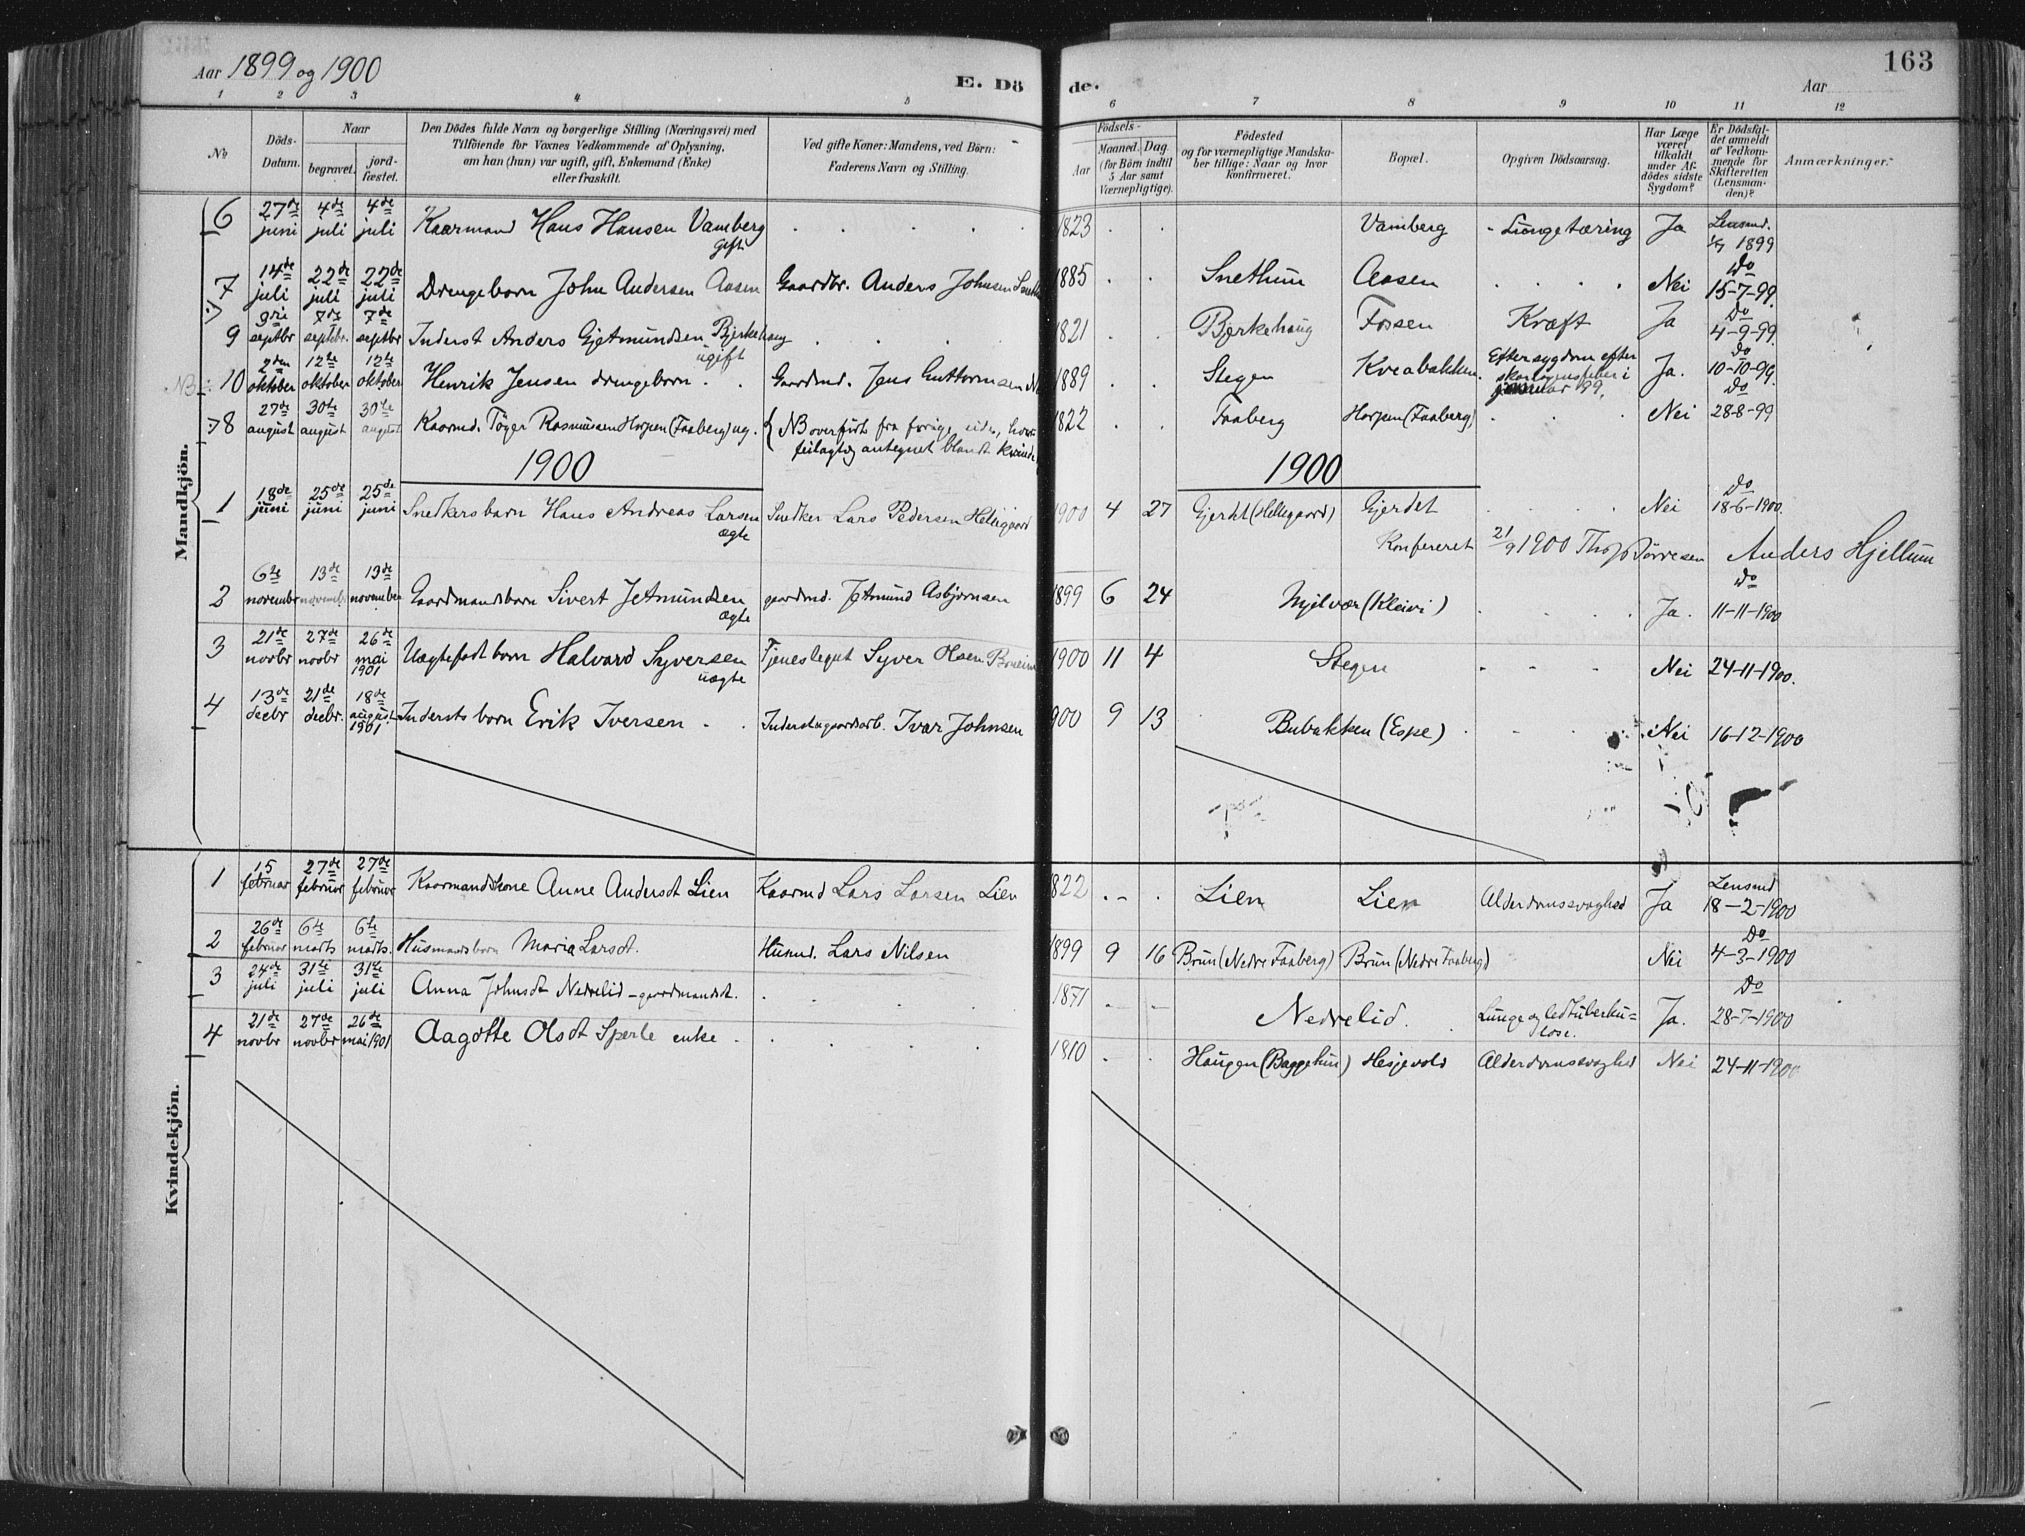 Aar 1899 og 1900
E. Dö de.
Aar
163
1 2 3 4 5 6 7 8 9 10 11 12
No
Döds-Datum.
Naar
begravet.
jord-fæstet.
Den Dödes fulde Navn og borgerlige Stilling (Næringsvei) med
Tilföiende for Voxnes Vedkommende af Oplysning,
om han (hun) var ugift, gift, Enkemand (Enke)
eller fraskilt.
Ved gifte Koner: Mandens, ved Börn:
Faderens Navn og Stilling.
Födsels-
Aar
Maaned. Dag
(for Börn indtil
5 Aar samt
Værnepligtige).
Födested
og for værnepligtige Mandska-
ber tillige: Naar og hvor
konfirmeret.
Bopæl.
Opgiven Dödsaarsag.
Har Læge
været
tilkaldt
under Af-
dödes sidste
Sygdom?
Er Dödsfal-
det anmeldt
af Vedkom-
mende for
Skifteretten
(Lensman-
den)?
Anmærkninger.
Mandkjön.
6 27de juni 4de juli 4de juli Kaarmand Hans Hansen Vamberg gift 1823 Vamberg Lungetæring Ja Lensmd. 1899
7 14de juli 22de juli 22de juli Drengebarn John Andersen Aasen Gaardbr. Anders Johnsen 1885 Snethun Aasen Nei Do 15-7-99.
9 3di septbr 7de septbr. 7de septbr Inderst Anders Gjetmundsen Bjerkehaug ugift 1821 Bjerkehaug Fossen Kræft Ja Do 4-9-99.
NB 10 2den oktober 12te oktober 12te oktober Henrik Jensen drengebarn Gaardmd. Jens Guttormsen 1889 Stegen Kveabakken. Efter sygdom efter skarlagensfeber i januar 99. Ja. Do 10-10-99.
8 27de august 30te august 30te august Kaarmd. Töger Rasmussen Horpen (Faaberg) ug. NB overfört fra forige side, hvor feilagtig antegnet blandt kvinde 1822 Faaberg Horpen (Faaberg) Nei Do 28-8-99
1900 1900
1 18de juni 25de juni 25de juni Snedkersbarn Hans Andreas Larsen ægte Snedker Lars Pedersen Hellegaard 1900 4 27 Gjerdet (Hellegaard) Gjerdet Nei Do 18-6-1900.
Konfereret 21/9 1900 Anders Hjellum
2 6te novembr 13de novembr 13de november Gaardmandsbarn Sivert Jetmundsen ægte gaardmd. Jetmund Asbjørnsen 1899 6 24 (Kleivi) Ja. Do 11-11-1900
3 21de novbr 27de novbr 26de mai 1901 Uægtefødt barn Halvard Syversen uægte Tjenestegut Syver Olsen 1900 11 4 Stegen Nei 24-11-1900.
4 13de decbr 21de decbr. 18de august 1901 Inderstsbarn Erik Iversen Inderst gaardsarb. Ivar Johnsen 900 9 13 Bubakken (Espe) Nei 16-12-1900
Kvindekjön.
1 15 februar 27de februar 27de februar Kaarmandskone Anne Andersdt Lien Kaarmd Lars Larsen Lien 1822 Lien Lien Alderdomssvaghed Ja Lensmd 18-2-1900
2 26de februar 6te marts 6te marts. Husmandsbarn Maria Larsdt. Husmd. Lars Nilsen 1899 9 16 Brun (Nedre Faaberg) Brun (Nedre Faaberg) Nei Do 4-3-1900
3 24de juli 31te juli 31te juli Anna Johnsdt Nedrelid - gaardmandsdt. 1871 Nedrelid. Lunge og ledtuberkulose. Ja. Do 28-7-1900
4 21de novbr 27de novbr 26de mai 1901 Aagotte Olsdt Sperle enke 1810 Haugen (Baggehun) Hesjevold Alderdomssvaghed Nei 24-11-1900